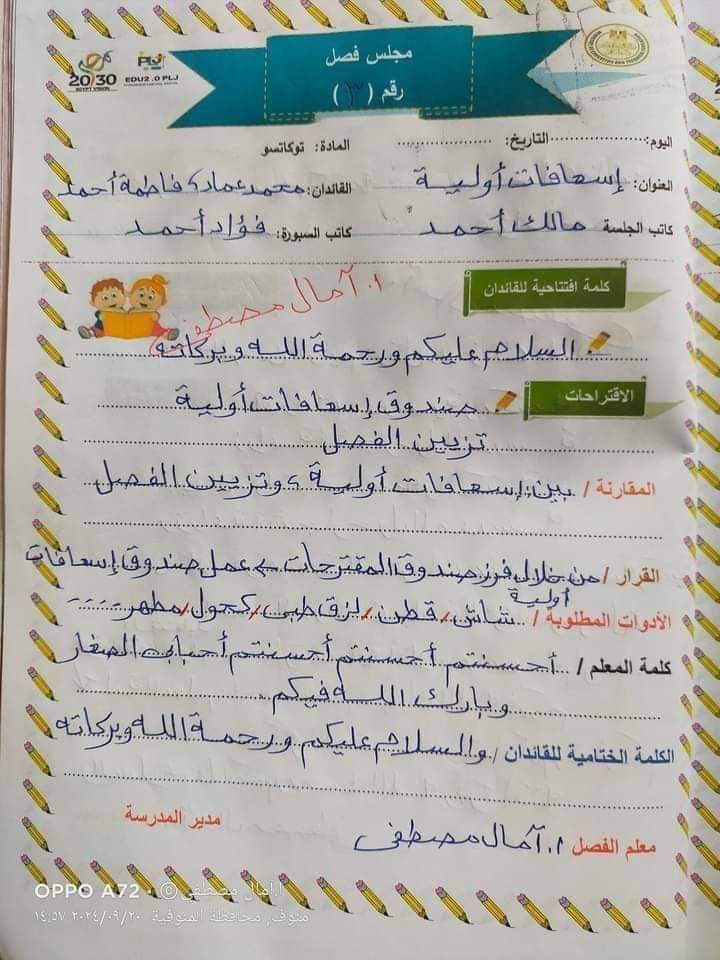 2030
EGYPT VISION
PLJ
EDU2.0 PLJ
مجلس فصل
رقم (٣)
اليوم: التاريخ: المادة: توكاتسو
العنوان: إسعافات أولية القائدان: محمد عماد، فاطمة أحمد
كاتب الجلسة مالك أحمد كاتب السبورة: فؤاد أحمد
كلمة افتتاحية للقائدان
أ. آمال مصطفى
السلام عليكم ورحمة الله وبركاته
الاقتراحات
صندوق إسعافات أولية
تزيين الفصل
المقارنة / بين إسعافات أولية، وتزيين الفصل
القرار / من خلال فرز صندوق المقترحات ← عمل صندوق إسعافات
أولية
الأدوات المطلوبة / شاش/ قطن/ لزق طبي/ كحول/ مطهر
كلمة المعلم / أحسنتم أحسنتم أحسنتم أحبابى الصغار
وبارك الله فيكم
الكلمة الختامية للقائدان / والسلام عليكم ورحمة الله وبركاته
مدير المدرسة
معلم الفصل أ. آمال مصطفى
OPPO A72 · © أ/امال مصطفى
منوف, محافظة المنوفية ٢٠٢٤/٠٩/٢٠ ١٤:٥٧